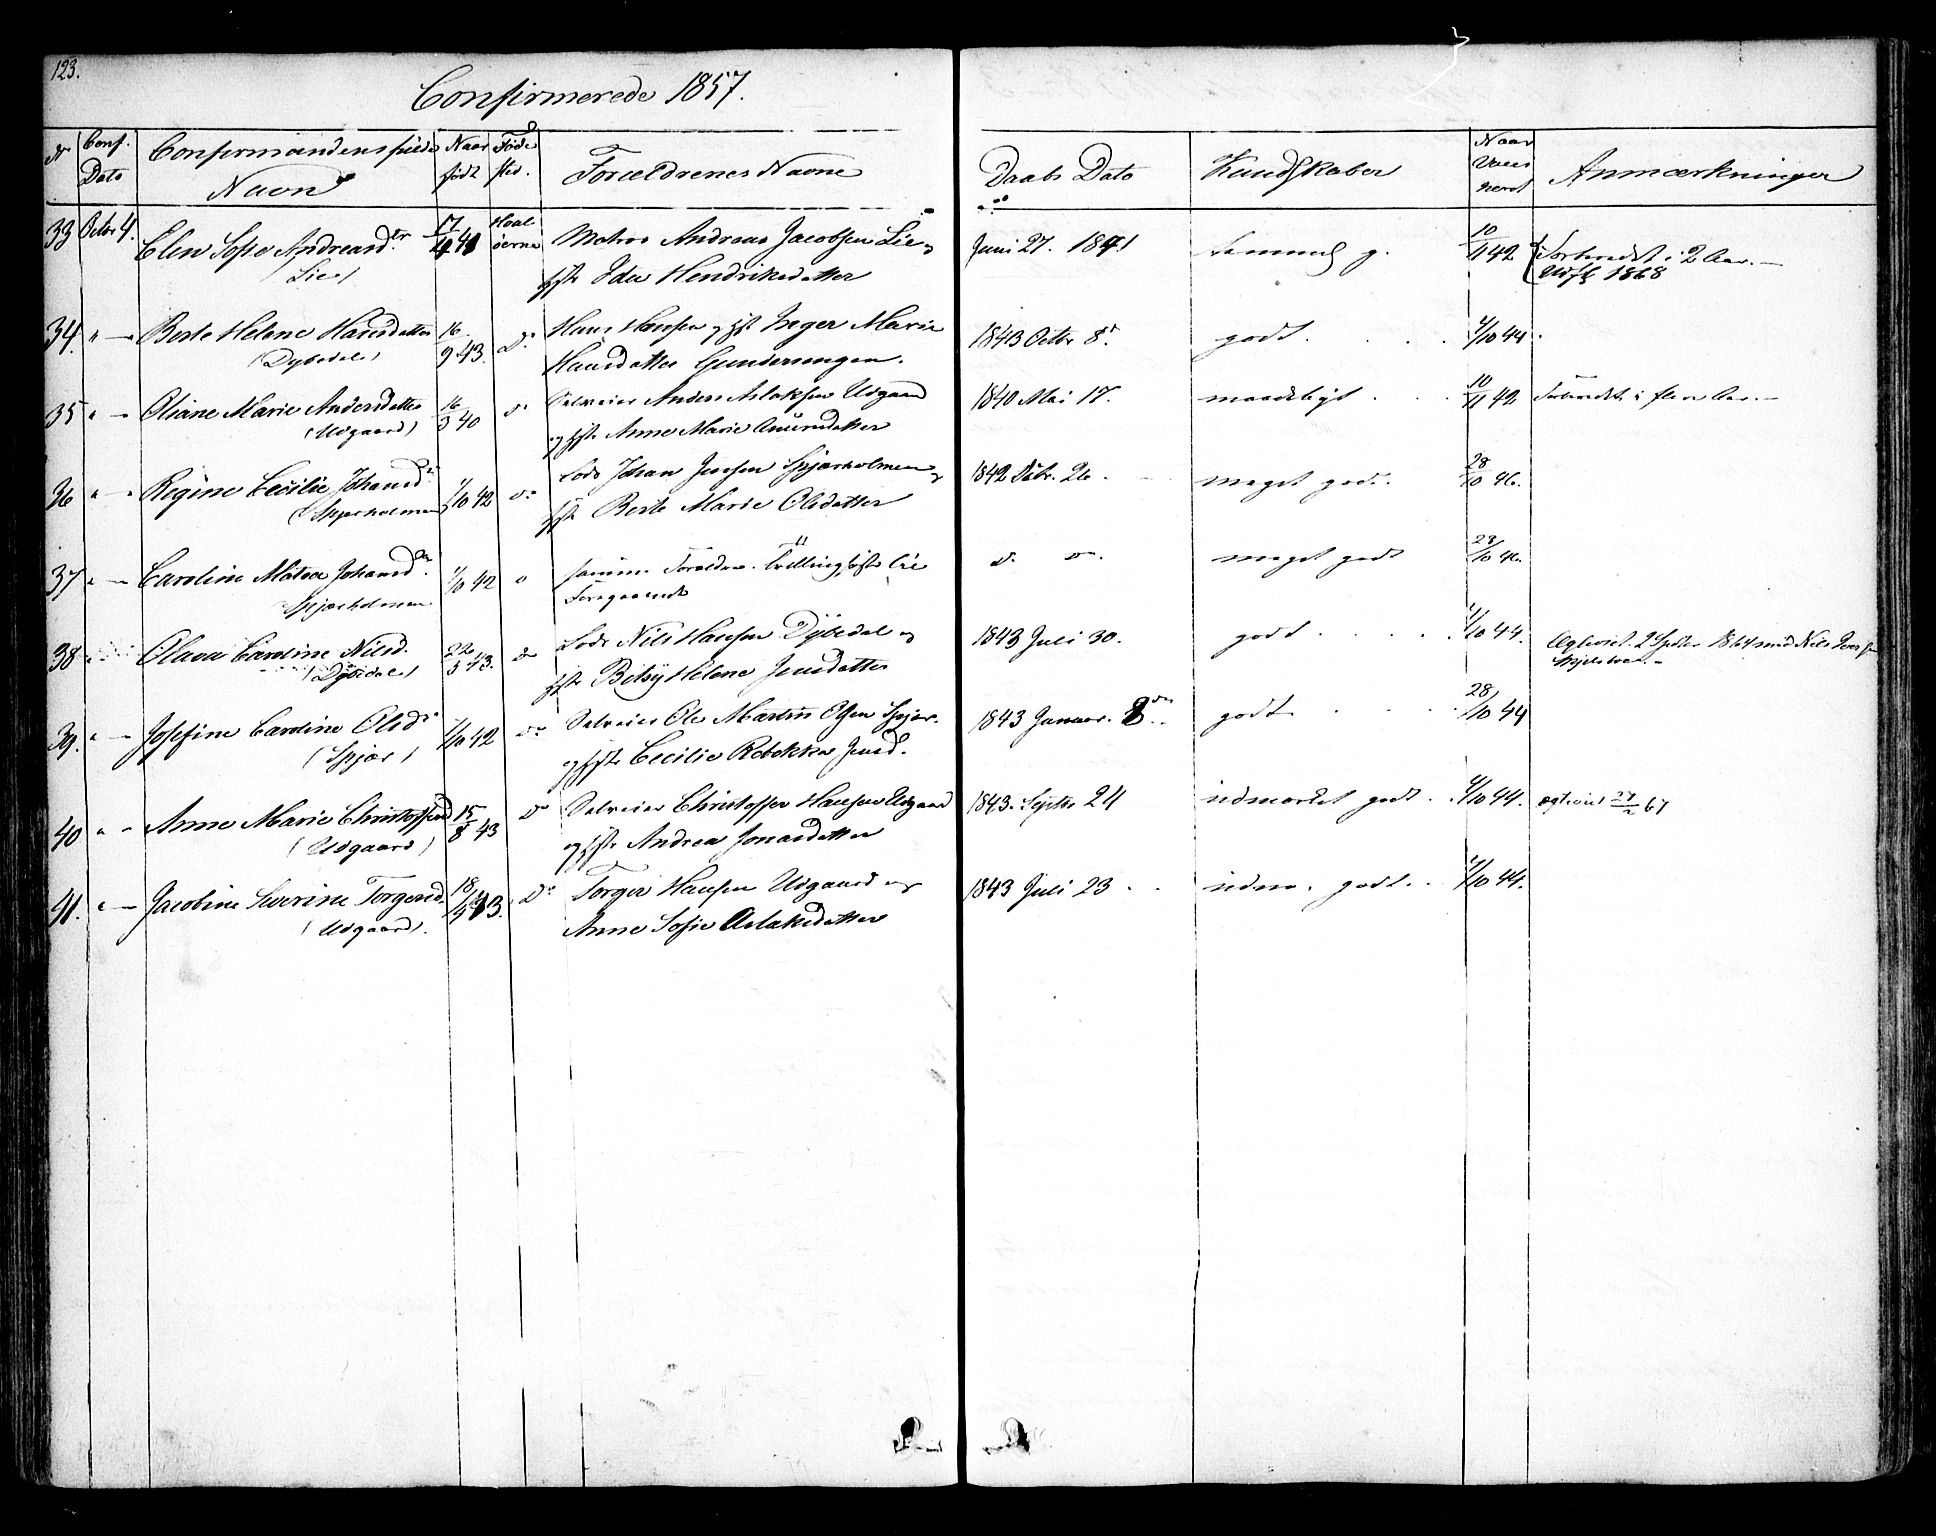 123.
Confirmerede 1857.
Nr Conf. Dato Confirmandens fulde Navn Naar født Fødested. Forældrenes Navne Daabs Dato Kundskaber Naar Vaccineret Anmærkninger
33 Octbr 4. Elen Sofie Andreasd.tr 17/4 41 Hvaløerne Matros Andreas Jacobsen Lie og Juni 27. 1841 temmel g. 10/11 42 Forberedt i 2 Aar. —
(Lie) gste Ida Hendriksdatter Udfl 1868
34. " — Berte Helene Hansdatter 16/9 43. Do Hans Hansen og gst Inger Marie 1843 Octbr 8d. godt. 4/10 44.
(Dybedal) Hansdatter Gunderengen.
35 " — Oliane Marie Andersdatter 16/3 40 do Selveier Anders Aslaksen Udgaard 1840 Mai 17. maadeligt 10/11 42 Forberedt i flere Aar. —
(Udgaard) og gste Anne Marie Amundsdatter
36 " " Regine Cecilie Johansd. 1/10 42 do Lods Johan Jensen Spjærholmen og 1842 Dcbr. 26. meget godt. 28/10 46.
(Spjærholmen) gste Berte Marie Olsdatter
37 " — Caroline Matea Johansd. 1/10 42 do samme Forældre. Tvillingsøster til d. do. meget godt 28/10 46.
Spjærholmen. Foregaaende
38 " Olava Caroline Nilsd. 22/5 43. do Lods Nils Hansen Dybedal og 1843 Juli 30. godt 4/10 44. Ægteviet 2 Septbr 1864 med Nils
(Dybedal) gste Betsy Helene Jensdatter
39. " — Josefine Caroline Olsd. 7/10 42 do Selveier Ole Martin Olsen Spjær. 1843 Januar. 8de. godt 28/10 44
(Spjær) og gste Cecilie Rebekka Jensd.
40 " " Anne Marie Christoffersd 15/8 43 Do Selveier Christoffer Hansen Udgaard 1843. Septbr 24 udmærket godt. 4/10 44. ægteviet 27/2 67
(Udgaard) og gste Andrea Jonasdatter
41. " — Jacobine Severine Torgersd. 18/4 43. Do Torger Hansen Udgaard og 1843 Juli 23 udm. godt. 4/10 44.
(Udgaard). Anne Sofie Aslaksdatter